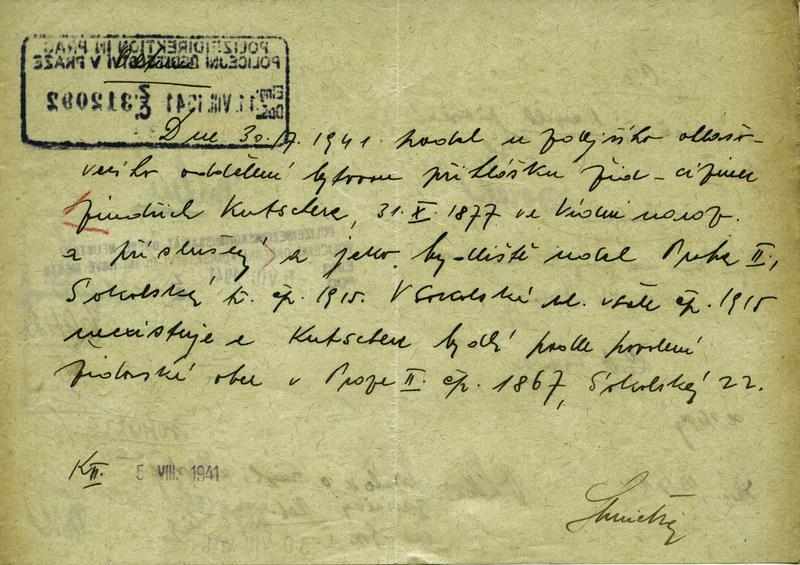 POLIZEIDIREKTION IN PRAG
POLICEJNÍ ŘEDITELSTVÍ V PRAZE
11. VIII. 1941 312092
Dne 30.IV. 1941 podal u zdejšího ohlašo-
vacího oddělení bytovou přihlášku žid-cizinec
Jindřich Kutscher, 31. X. 1877 ve Vídni naroz.
a příslušný a jako bydliště udal Praha II,
Sokolská tř. čp. 1915. V Sokolské ul. však čp. 1915
neexistuje a Kutscher bydlí podle povolení
židovské obce v Praze II. čp. 1867, Sokolská 22.
K II. 5 VIII. 1941